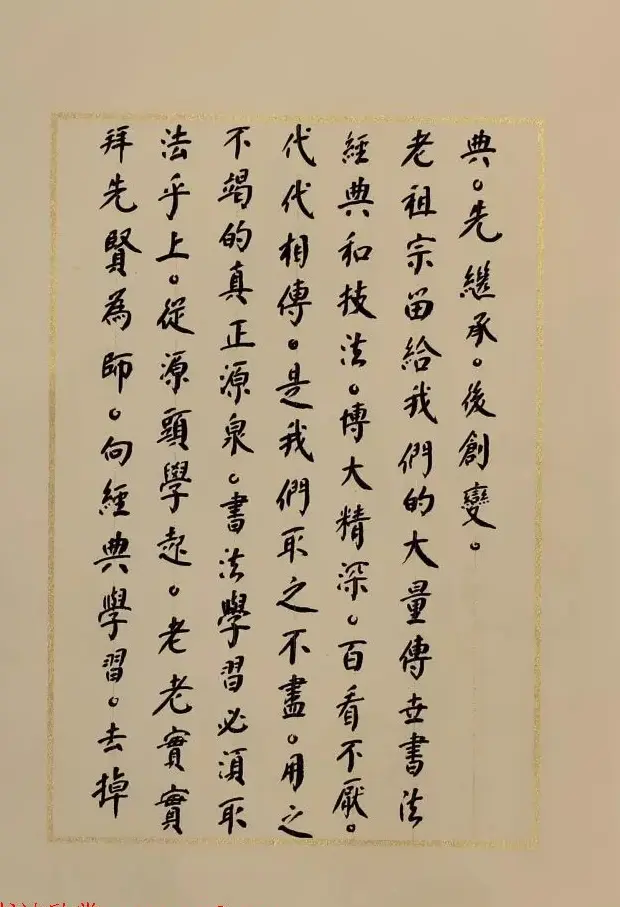 典。先繼承。後創變。
老祖宗留給我們的大量傳世書法
經典和技法。博大精深。百看不厭。
代代相傳。是我們取之不盡。用之
不竭的真正源泉。書法學習必須取
法乎上。從源頭學起。老老實實
拜先賢為師。向經典學習。去掉